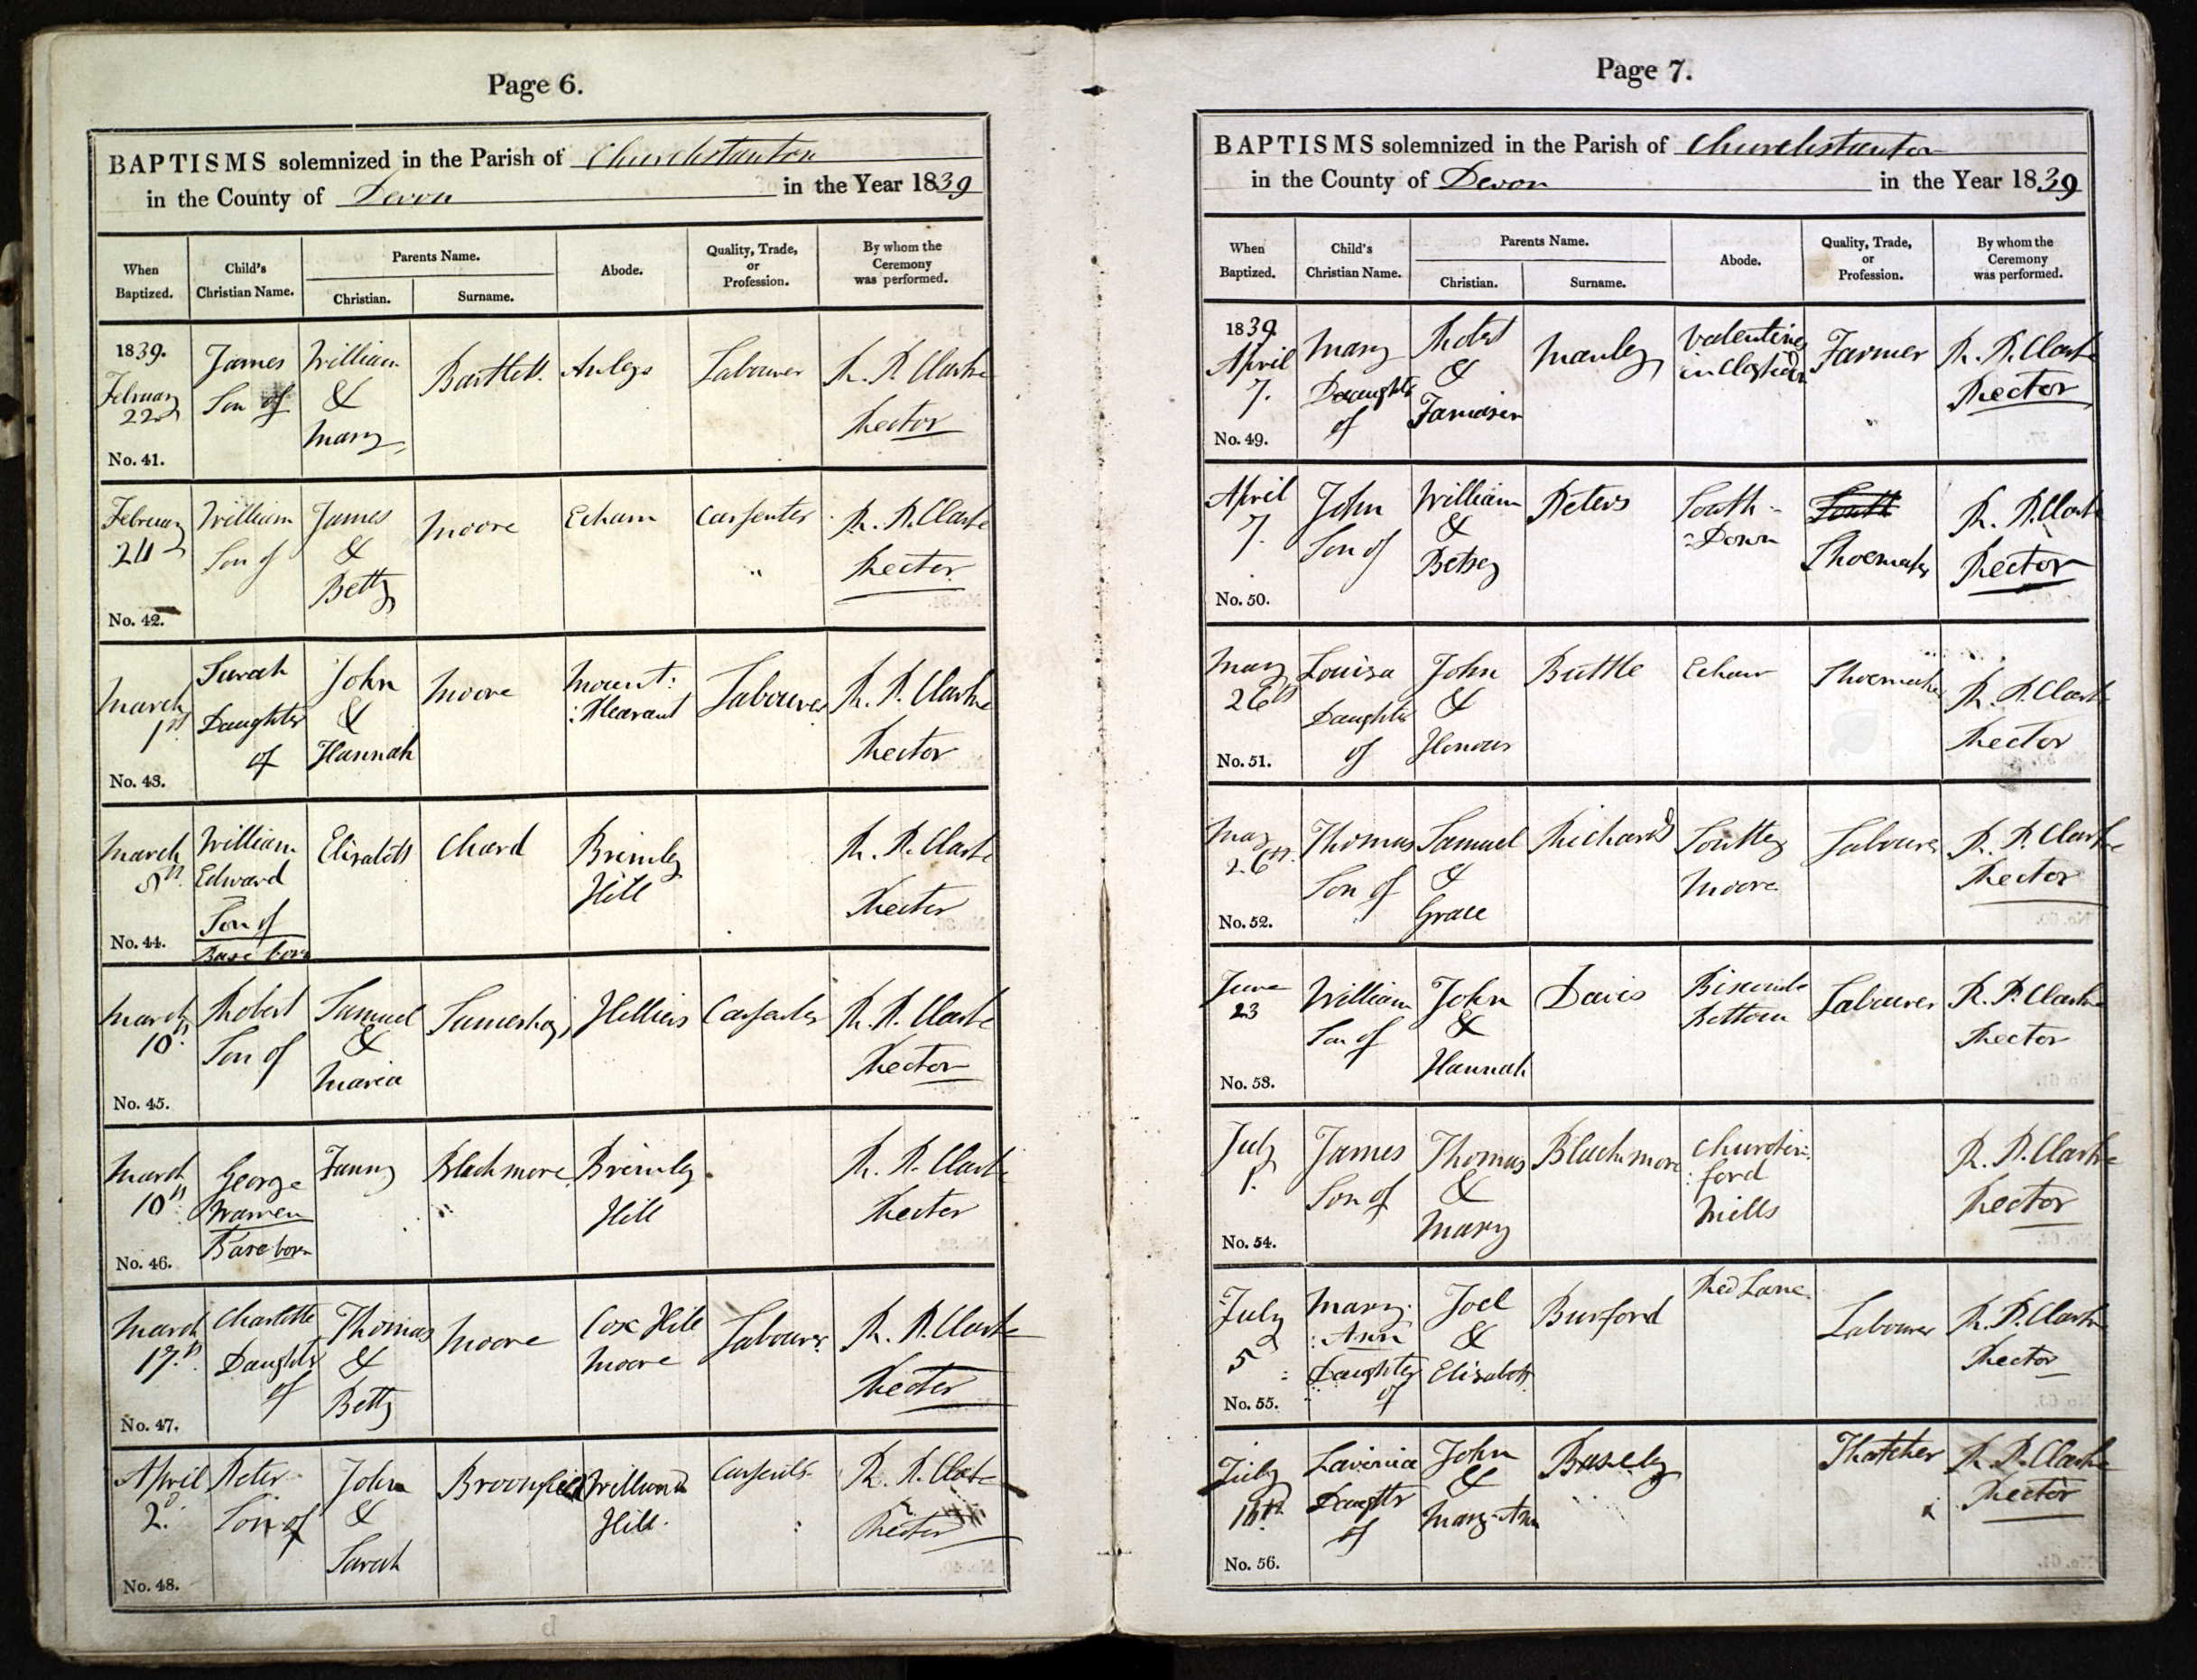 Page 6.
BAPTISMS solemnized in the Parish of Churchstanton
in the County of Devon in the Year 1839
When Baptized.
Child's Christian Name.
Parents Name.
Christian.
Surname.
Abode.
Quality, Trade, or Profession.
By whom the Ceremony was performed.
1839.
February 22d
No. 41.
James Son of
William & Mary
Bartlett.
Labourer
R. P. Clarke Rector
February 24
No. 42.
William Son of
James & Betty
Moore
Echam
Carpenter
R. P. Clarke Rector
March 1st
No. 43.
Sarah Daughter of
John & Hannah
Moore
Mount: :Pleasant
Labourer
R. P. Clarke Rector
March 8th
No. 44.
William Edward Son of Base born
Elizabeth
Chard
Brimley Hill
R. P. Clarke Rector
March 10th
No. 45.
Robert Son of
Samuel & Maria
Hilliers
Carpenter
R. P. Clarke Rector
March 10th
No. 46.
George Warren Base born
Fanny
Blackmore
Brimley Hill
R. P. Clarke Rector
March 17.th
No. 47.
Charlotte Daughter of
Thomas & Betty
Moore
Cox Hill Moore
Labourer
R. P. Clarke Rector
April 2d
No. 48.
Peter Son of
John & Sarah
Broomfield
Hill.
Carpenter
R. P. Clarke Rector
Page 7.
BAPTISMS solemnized in the Parish of Churchstanton
in the County of Devon in the Year 1839
When Baptized.
Child's Christian Name.
Parents Name.
Christian.
Surname.
Abode.
Quality, Trade, or Profession.
By whom the Ceremony was performed.
1839.
April 7.
No. 49.
Mary Daughter of
Robert & Tamasin
Manley
Valentines in
Farmer
R. P. Clarke Rector
April 7.
No. 50.
John Son of
William & Betsey
Peters
South- =Down
Shoemaker
R. P. Clarke Rector
May 26th
No. 51.
Louisa Daughter of
John & Honour
Buttle
Echam
Shoemaker
R. P. Clarke Rector
May 26th.
No. 52.
Thomas Son of
Samuel & Grace
Richards
Southey Moore
Labourer
R. P. Clarke Rector
June 23
No. 53.
William Son of
John & Hannah
Davis
Bottom
Labourer
R. P. Clarke Rector
July 1.
No. 54.
James Son of
Thomas & Mary
Blackmore
Churchin: :ford Mills
R. P. Clarke Rector
July 5
No. 55.
Mary: :Ann Daughter of
Joel & Elizabeth
Burford
Red Lane.
Labourer
R. P. Clarke Rector
July
No. 56.
Lavinia Daughter of
John & Mary-Ann
Busley
Thatcher
R. P. Clarke Rector